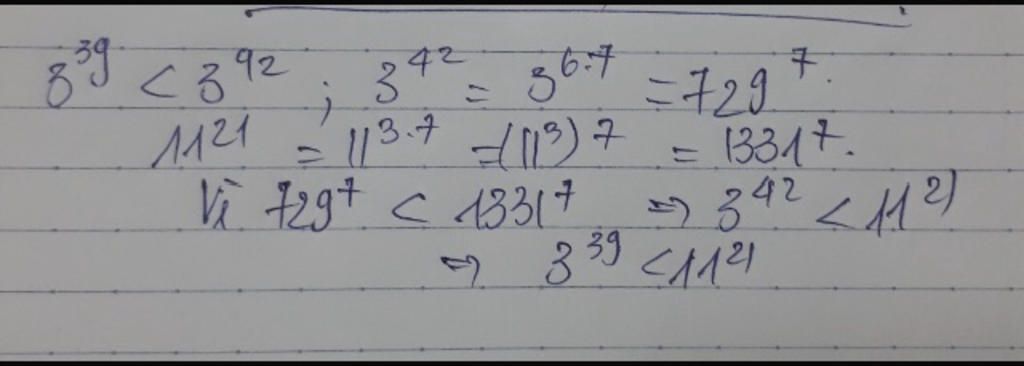 3^39 < 3^42 ; 3^42 = 3^6.7 = 729^7.
11^21 = 11^3.7 = (11^3)^7 = 1331^7.
Vì 729^7 < 1331^7 => 3^42 < 11^21
=> 3^39 < 11^21